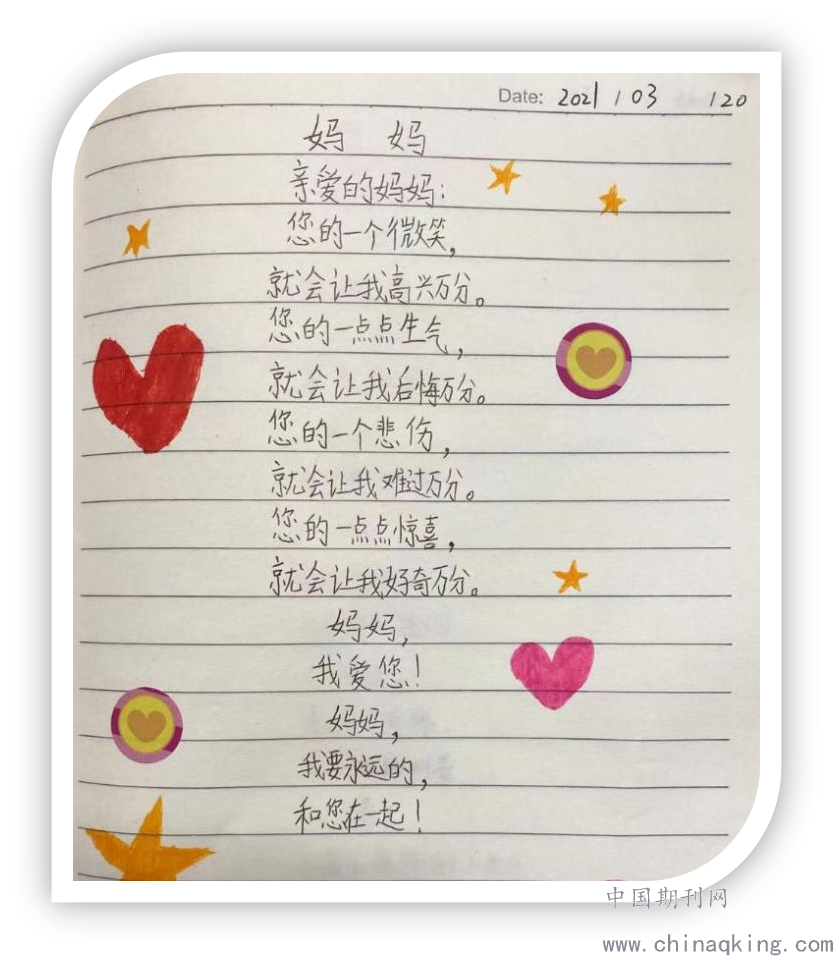 Date: 2021 / 03 / 20
妈 妈
亲爱的妈妈:
您的一个微笑,
就会让我高兴万分。
您的一点点生气,
就会让我后悔万分。
您的一个悲伤,
就会让我难过万分。
您的一点点惊喜,
就会让我好奇万分。
妈妈,
我爱您!
妈妈,
我要永远的,
和您在一起!
中国期刊网
www.chinaqking.com